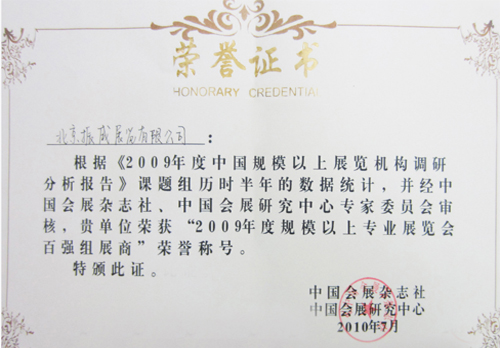 荣誉证书
HONORARY CREDENTIAL
北京振威展览有限公司：
根据《2009年度中国规模以上展览机构调研
分析报告》课题组历时半年的数据统计，并经中
国会展杂志社、中国会展研究中心专家委员会审
核，贵单位荣获“2009年度规模以上专业展览会
百强组展商”荣誉称号。
特颁此证。
中国会展杂志社
中国会展研究中心
2010年7月